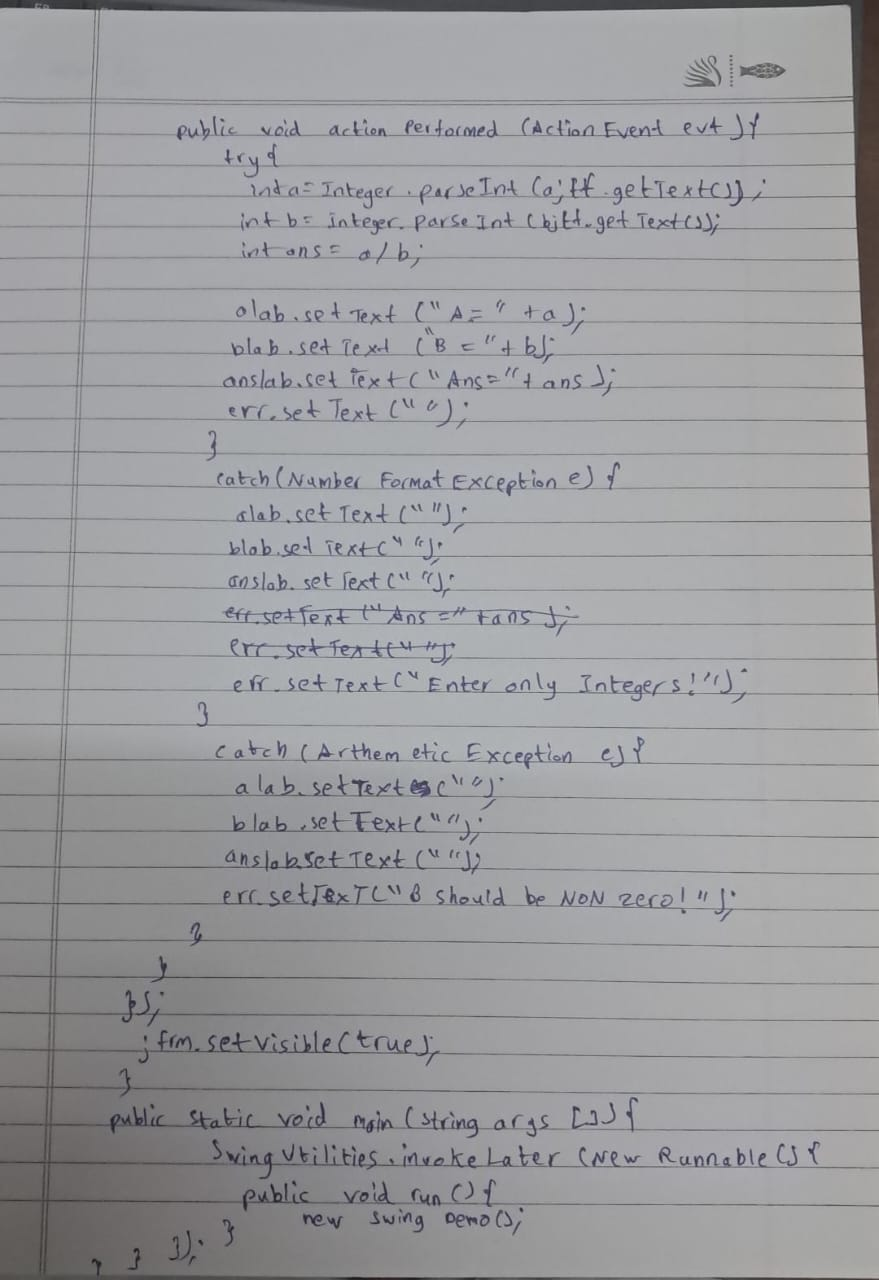 public void action Performed (Action Event evt) {
try {
int a = Integer . parse Int (ajtf . getText());
int b = integer. Parse Int (bjtf. get Text());
int ans = a/b;
alab. set Text ("A=" +a);
blab. set Text ("B ="+ b);
anslab. set Text ("Ans="+ ans );
err. set Text (" ");
}
catch (Number Format Exception e) {
alab. set Text (" ");
blab. set Text (" ");
anslab. set Text (" ");
err. set Text ("Ans =" +ans );
err. set Text (" ");
err. set Text ("Enter only Integers!");
}
catch ( Arthem etic Exception e) {
alab. set Text (" ");
blab . set Text (" ");
anslab. set Text (" ");
err. set TexT ("B should be NON zero! ");
}
}
});
jfrm. set visible (true);
}
public static void main (string args []) {
Swing Utilities . invoke Later (New Runnable () {
public void run () {
new swing Demo ();
} } }); }